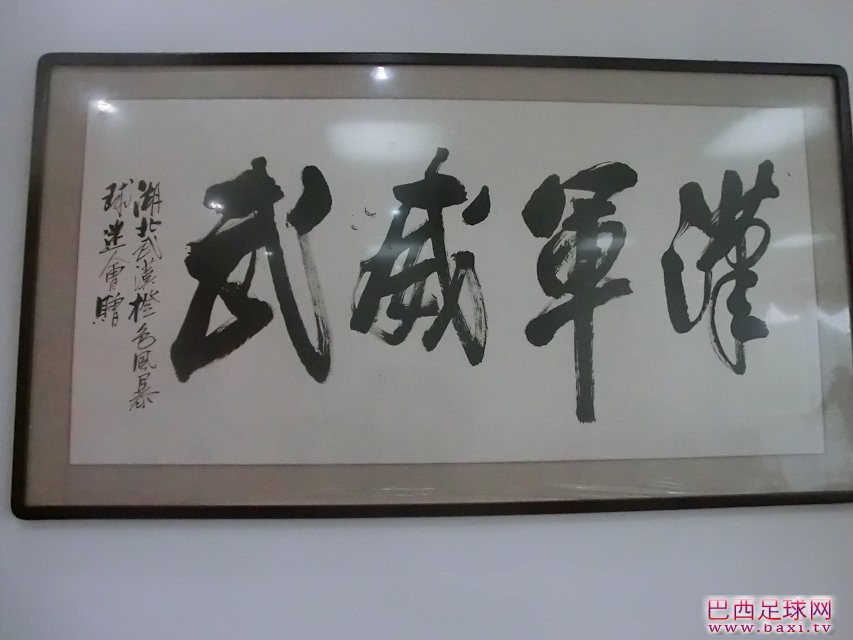 漢軍威武
湖北武漢橙色风暴
球迷會贈
巴西足球网
www.baxi.tv